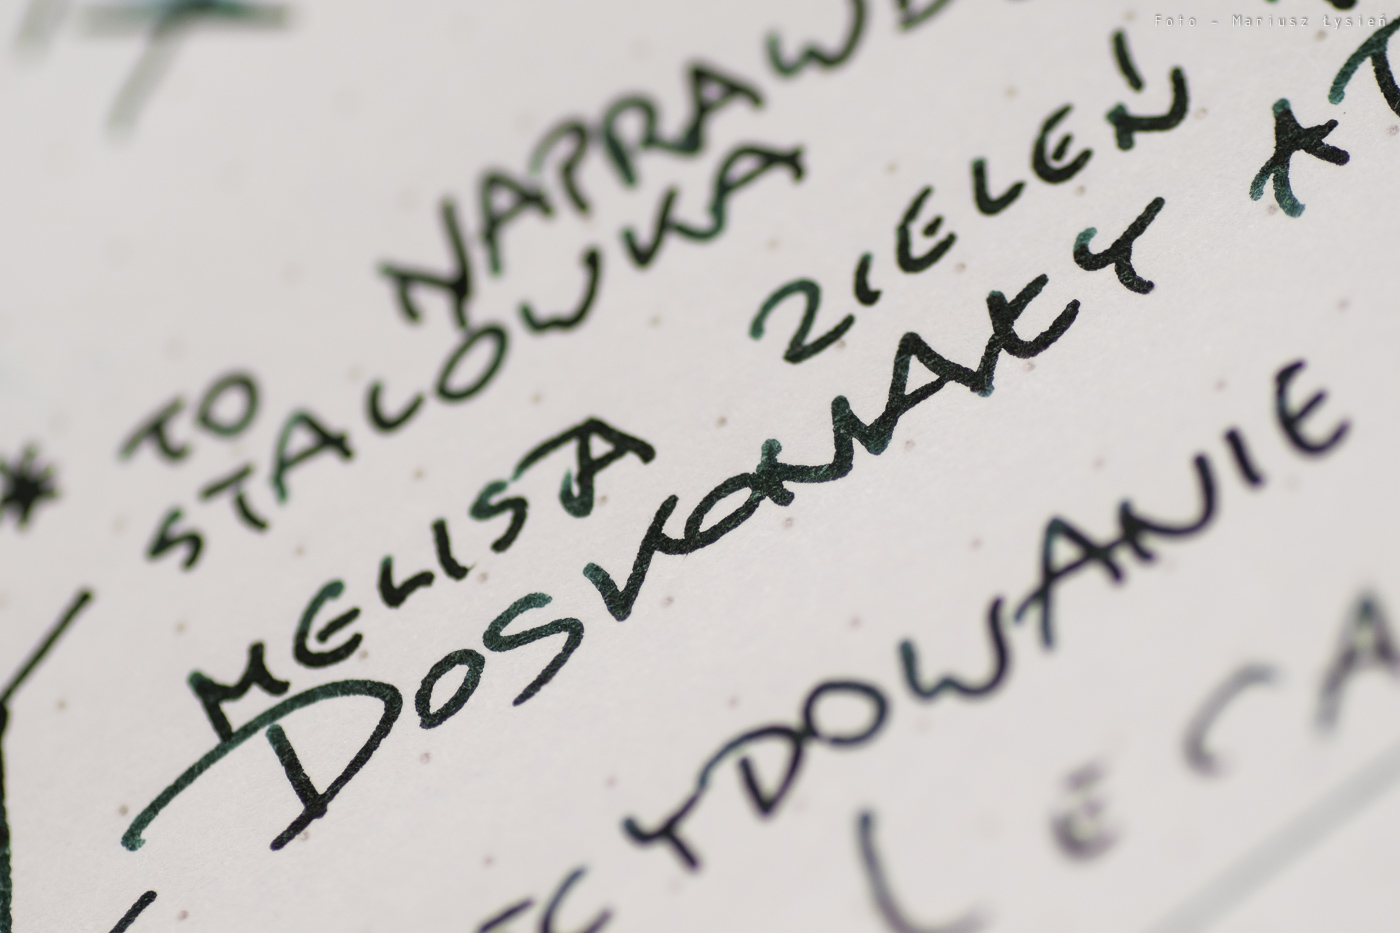 Foto - Mariusz Łysień
TO NAPRAW
STALOWKA
MELISA ZIELEŃ
DOSKONAŁY *
YDOWANIE